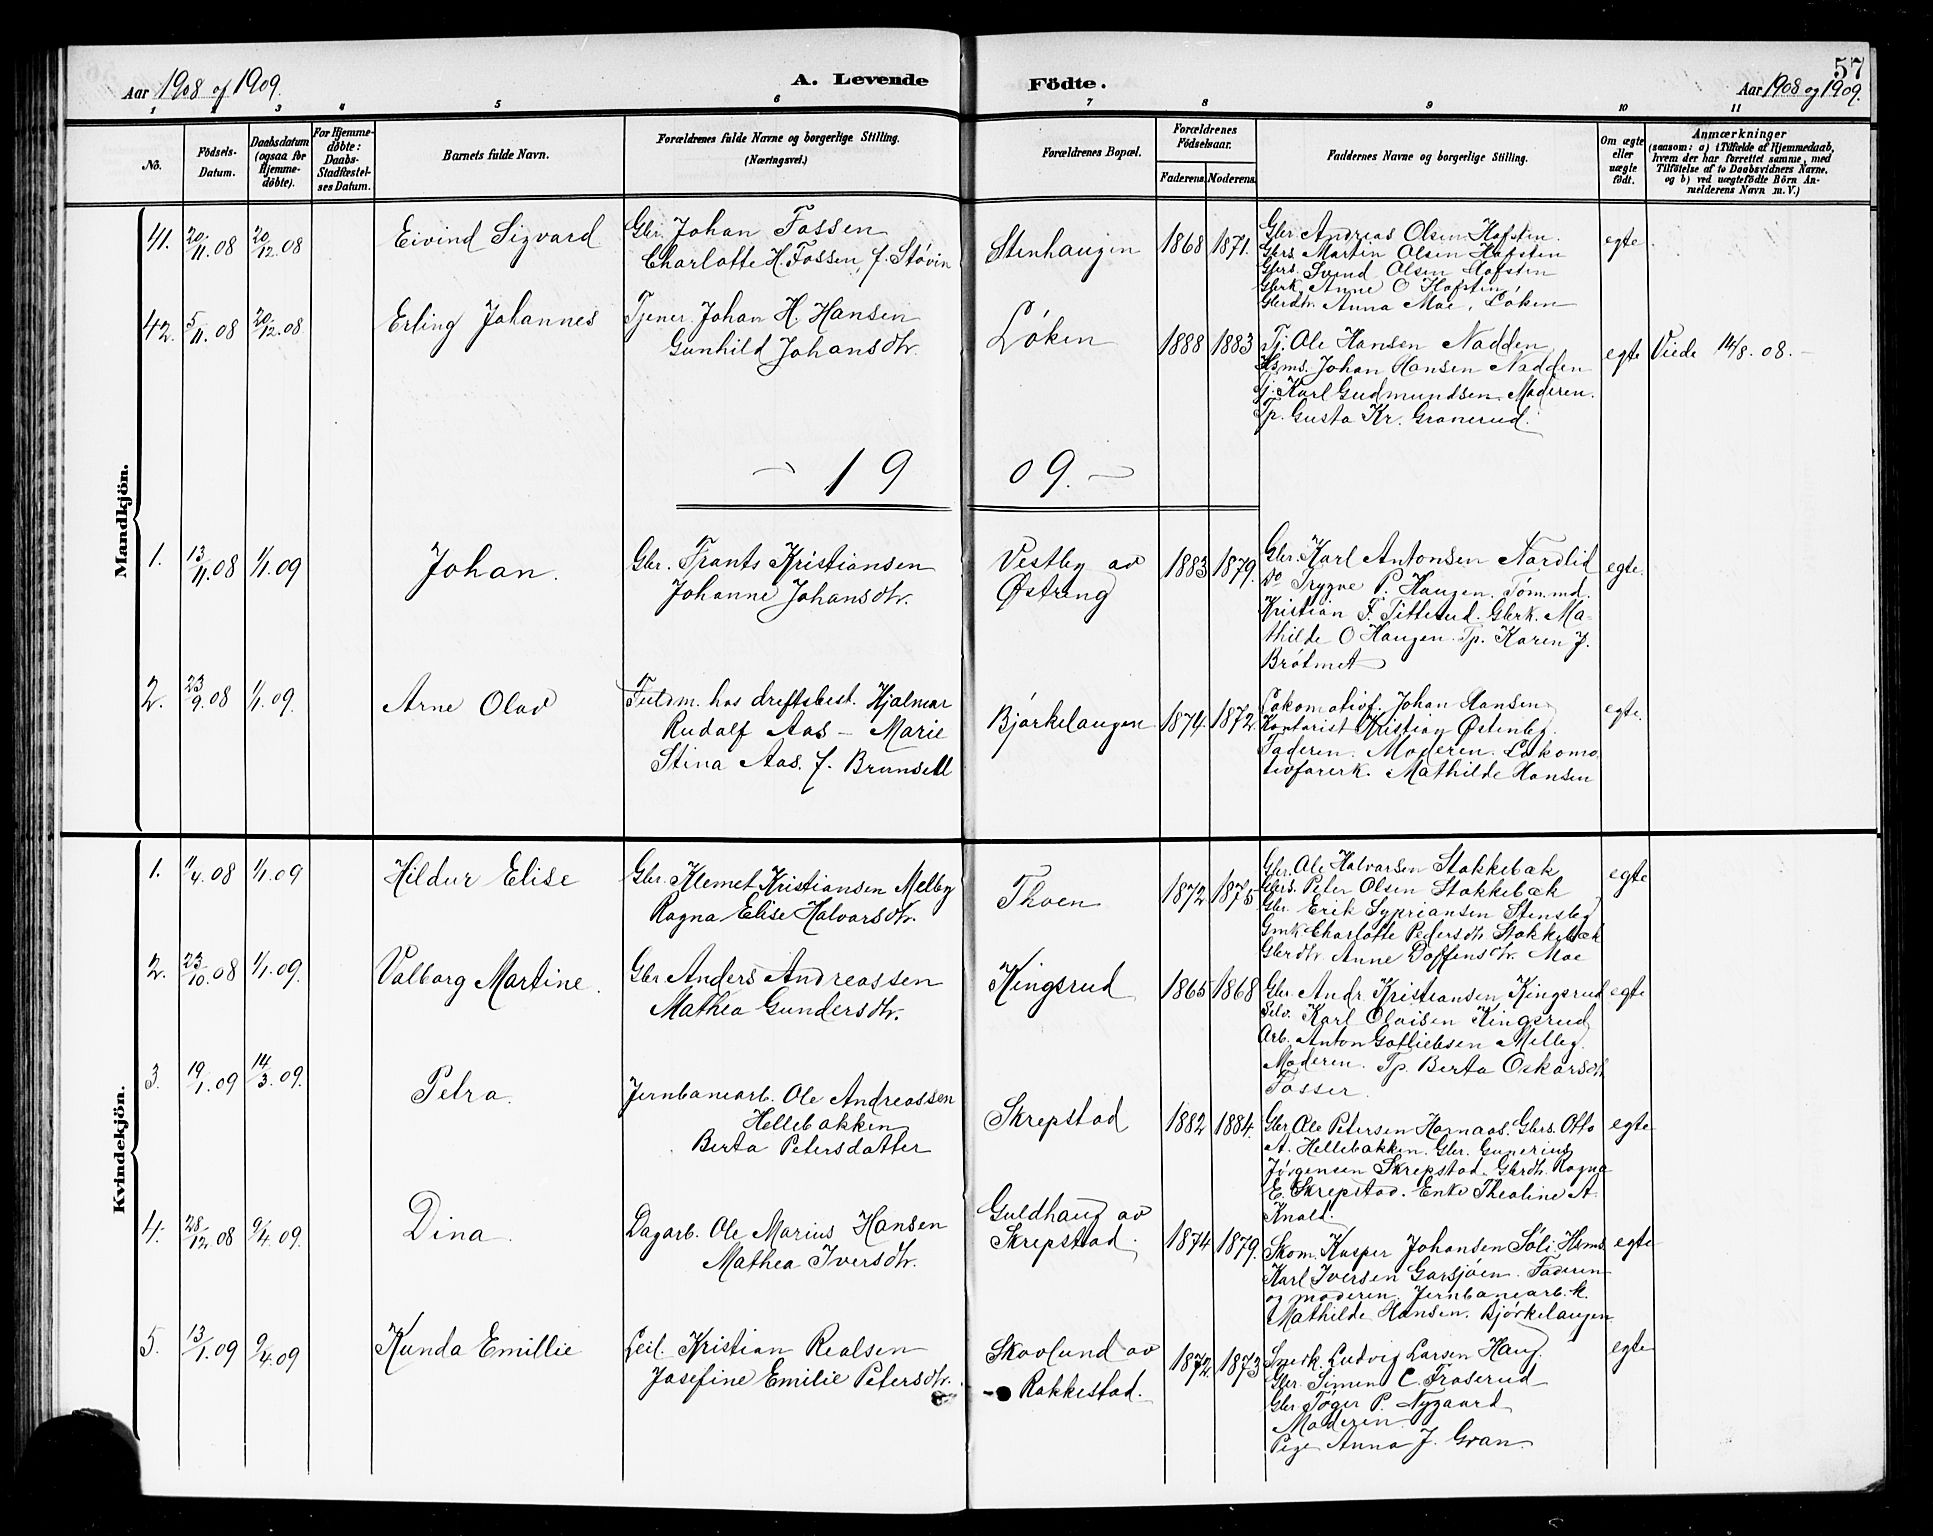 57
Aar 1908 og 1909. A. Levende Födte. Aar 1908 og 1909.
1 2 3 4 5 6 7 8 9 10 11
No.
Födsels-Datum.
Daabsdatum (ogsaa for Hjemme-döbte).
For Hjemme-döbte: Daabs-Stadfæstel-ses Datum.
Barnets fulde Navn.
Forældrenes fulde Navne og borgerlige Stilling. (Næringsvei.)
Forældrenes Bopæl.
Forældrenes Födselsaar.
Faderens. Moderens.
Faddernes Navne og borgerlige Stilling.
Om ægte eller uægte födt.
Anmærkninger (saasom: a) i Tilfælde af Hjemmedaab, hvem der har forrettet samme, med Tilföielse af to Daabsvidners Navne, og b) ved uægtefödte Börn An-melderens Navn m. V.)
Mandkjön.
41. 20/11.08 20/12.08 Eivind Sigvard
Gbr. Johan Fossen
Charlotte H. Fossen, f. Støvin
Stenhaugen 1868 1871.
Gbr Andreas Olsen Hofsten.
Gbrs. Martin Olsen Hofsten
Gbrs. Svend Olsen Hofsten
Gbrk. Anne O Hofsten
Gbrdtr. Anna Moe, Løken
egte.
42. 5/11.08 20/12.08 Erling Johannes
Tjener. Johan H. Hansen
Gunhild Johansdtr.
Løken 1888 1883
Tj. Ole Hansen Nadden
Hsms. Johan Hansen Nadden
Tj. Karl Gudmundsen. Moderen.
Tp. Gusta Kr. Granerud.
egte Viede 14/8. 08. -
- 19 09. -
1. 13/11.08 1/1.09 Johan.
Gbr. Frants Kristiansen
Johanne Johansdtr.
Vestby av
Østreng
1883 1879.
Gbr. Karl Antonsen Nordlid
Do Trygve P. Haugen. Tøm.md.
Kristian F. Titterud. Gbrk. Ma-
thilde O Haugen. Tp. Karen J.
Bråtmet
egte.
2. 23/9.08 1/1.09. Arne Olav
Fuldm. hos driftsbest. Hjalmar
Rudolf Aas - Marie
Stina Aas. f. Brunsell
Bjørkelangen 1874. 1872.
Lokomotivf. Johan Hansen
Kontorist Kristian Østenby.
Faderen. Moderen. Lokomo-
tivførerk. Mathilde Hansen
egte.
Kvindekjön.
1. 11/4.08 1/1.09 Hildur Elise
Gbr. Klemet Kristiansen Melby
Ragna Elise Halvorsdtr.
Thoen 1872 1875
Gbr. Ole Halvorsen Stokkebæk
Gbrs. Peter Olsen Stokkebæk
Gbr. Erik Sypriansen Stensby
Gmk Charlotte Pedersdtr Stokkebæk
Gbrdtr. Anne Doffensdtr. Moe
egte
2. 23/10.08 1/1.09. Valborg Martine.
Gbr Anders Andreassen
Mathea Gundersdtr.
Kingsrud 1865 1868
Gbr. Andr. Kristiansen Kingsrud
Selv. Karl Olaisen Kingsrud
Arb. Anton Gotliebsen Melby.
Moderen. Tp. Berta Oskarsdtr
Fosser.
egte
3. 19/1.09 14/3.09. Petra.
Jernbanearb. Ole Andreassen
Hellebakken
Berta Petersdatter
Skrepstad 1882 1884.
Gbr. Ole Petersen Hornaas. Gbrs. Otto
A. Hellebakken. Gbr. Gunerius
Jørgensen Skrepstad. Gbrdtr. Ragna
E. Skrepstad. Enke Theoline A.
Knold.
egte
4. 28/12.08 9/4.09. Dina.
Dagarb. Ole Marius Hansen
Mathea Iversdtr.
Guldhaug av
Skrepstad.
1874 1879.
Skom. Kasper Johansen Sóli. Hsms.
Karl Iversen Garsjøen. Faderen
og moderen. Jernbanearb.k.
Mathilde Hansen. Bjørkelangen
egte
5. 13/1.09 9/4.09 Kunda Emillie
Leil. Kristian Realsen
Josefine Emilie Petersdtr.
Skovlund av
Rakkestad.
1872. 1873
Smrk. Ludvig Larsen Haug.
Gbr. Simen C. Froserud
Gbr. Tøger P. Nygaard
Moderen.
Pige Anna J. Gran.
egte